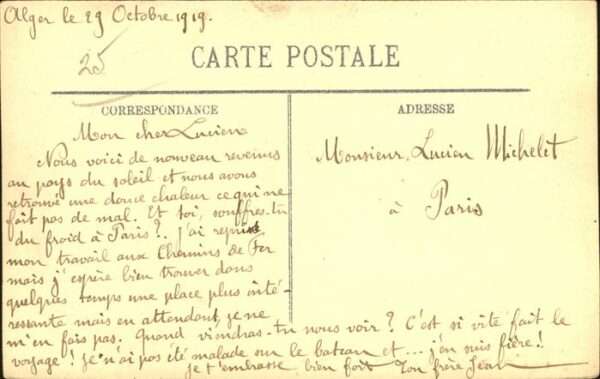 Alger le 29 Octobre 1919.
25
CARTE POSTALE
CORRESPONDANCE
ADRESSE
Mon cher Lucien
Nous voici de nouveau revenus
au pays du soleil et nous avons
retrouvé une douce chaleur ce qui ne
fait pas de mal. Et toi, souffres-tu
du froid à Paris?. J'ai repris
mon travail aux Chemins de Fer
mais j'espère bien trouver dans
quelques temps une place plus inté-
ressante mais en attendant, je ne
m'en fais pas. Quand viendras-tu nous voir? C'est si vite fait le
voyage! Je n'ai pas été malade sur le bateau et... j'en suis fière!
Je t'embrasse bien fort Ton frère Jean
Monsieur Lucien Michelet
à Paris